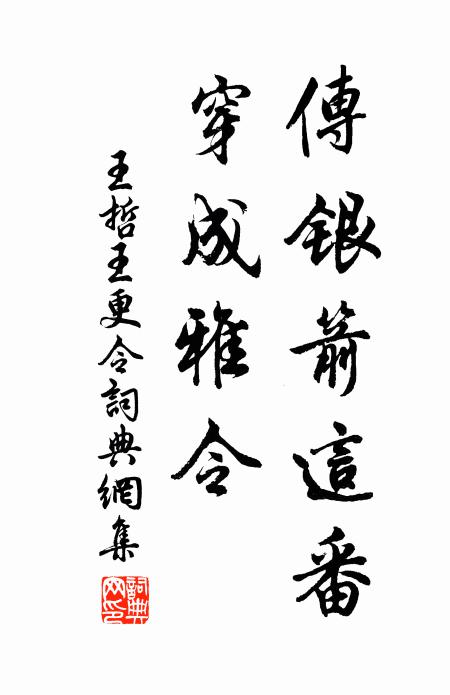 傳銀箭這番
穿成雅令
王哲王更令詞典網集
詞典網印